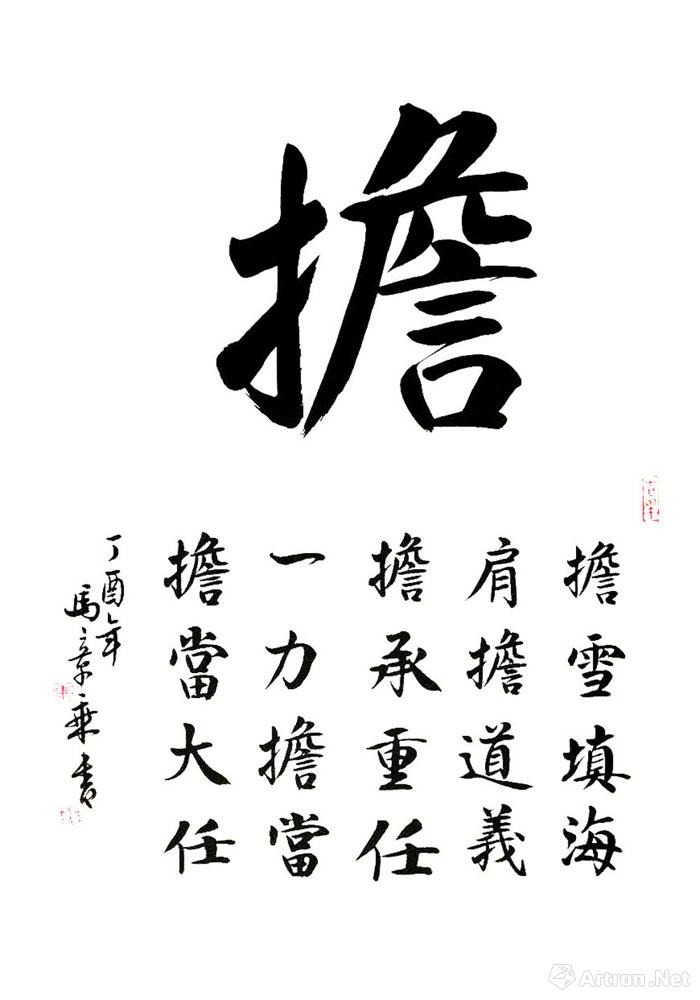 擔
擔雪填海
肩擔道義
擔承重任
一力擔當
擔當大任
丁酉年
馬章乘書
Artron.Net